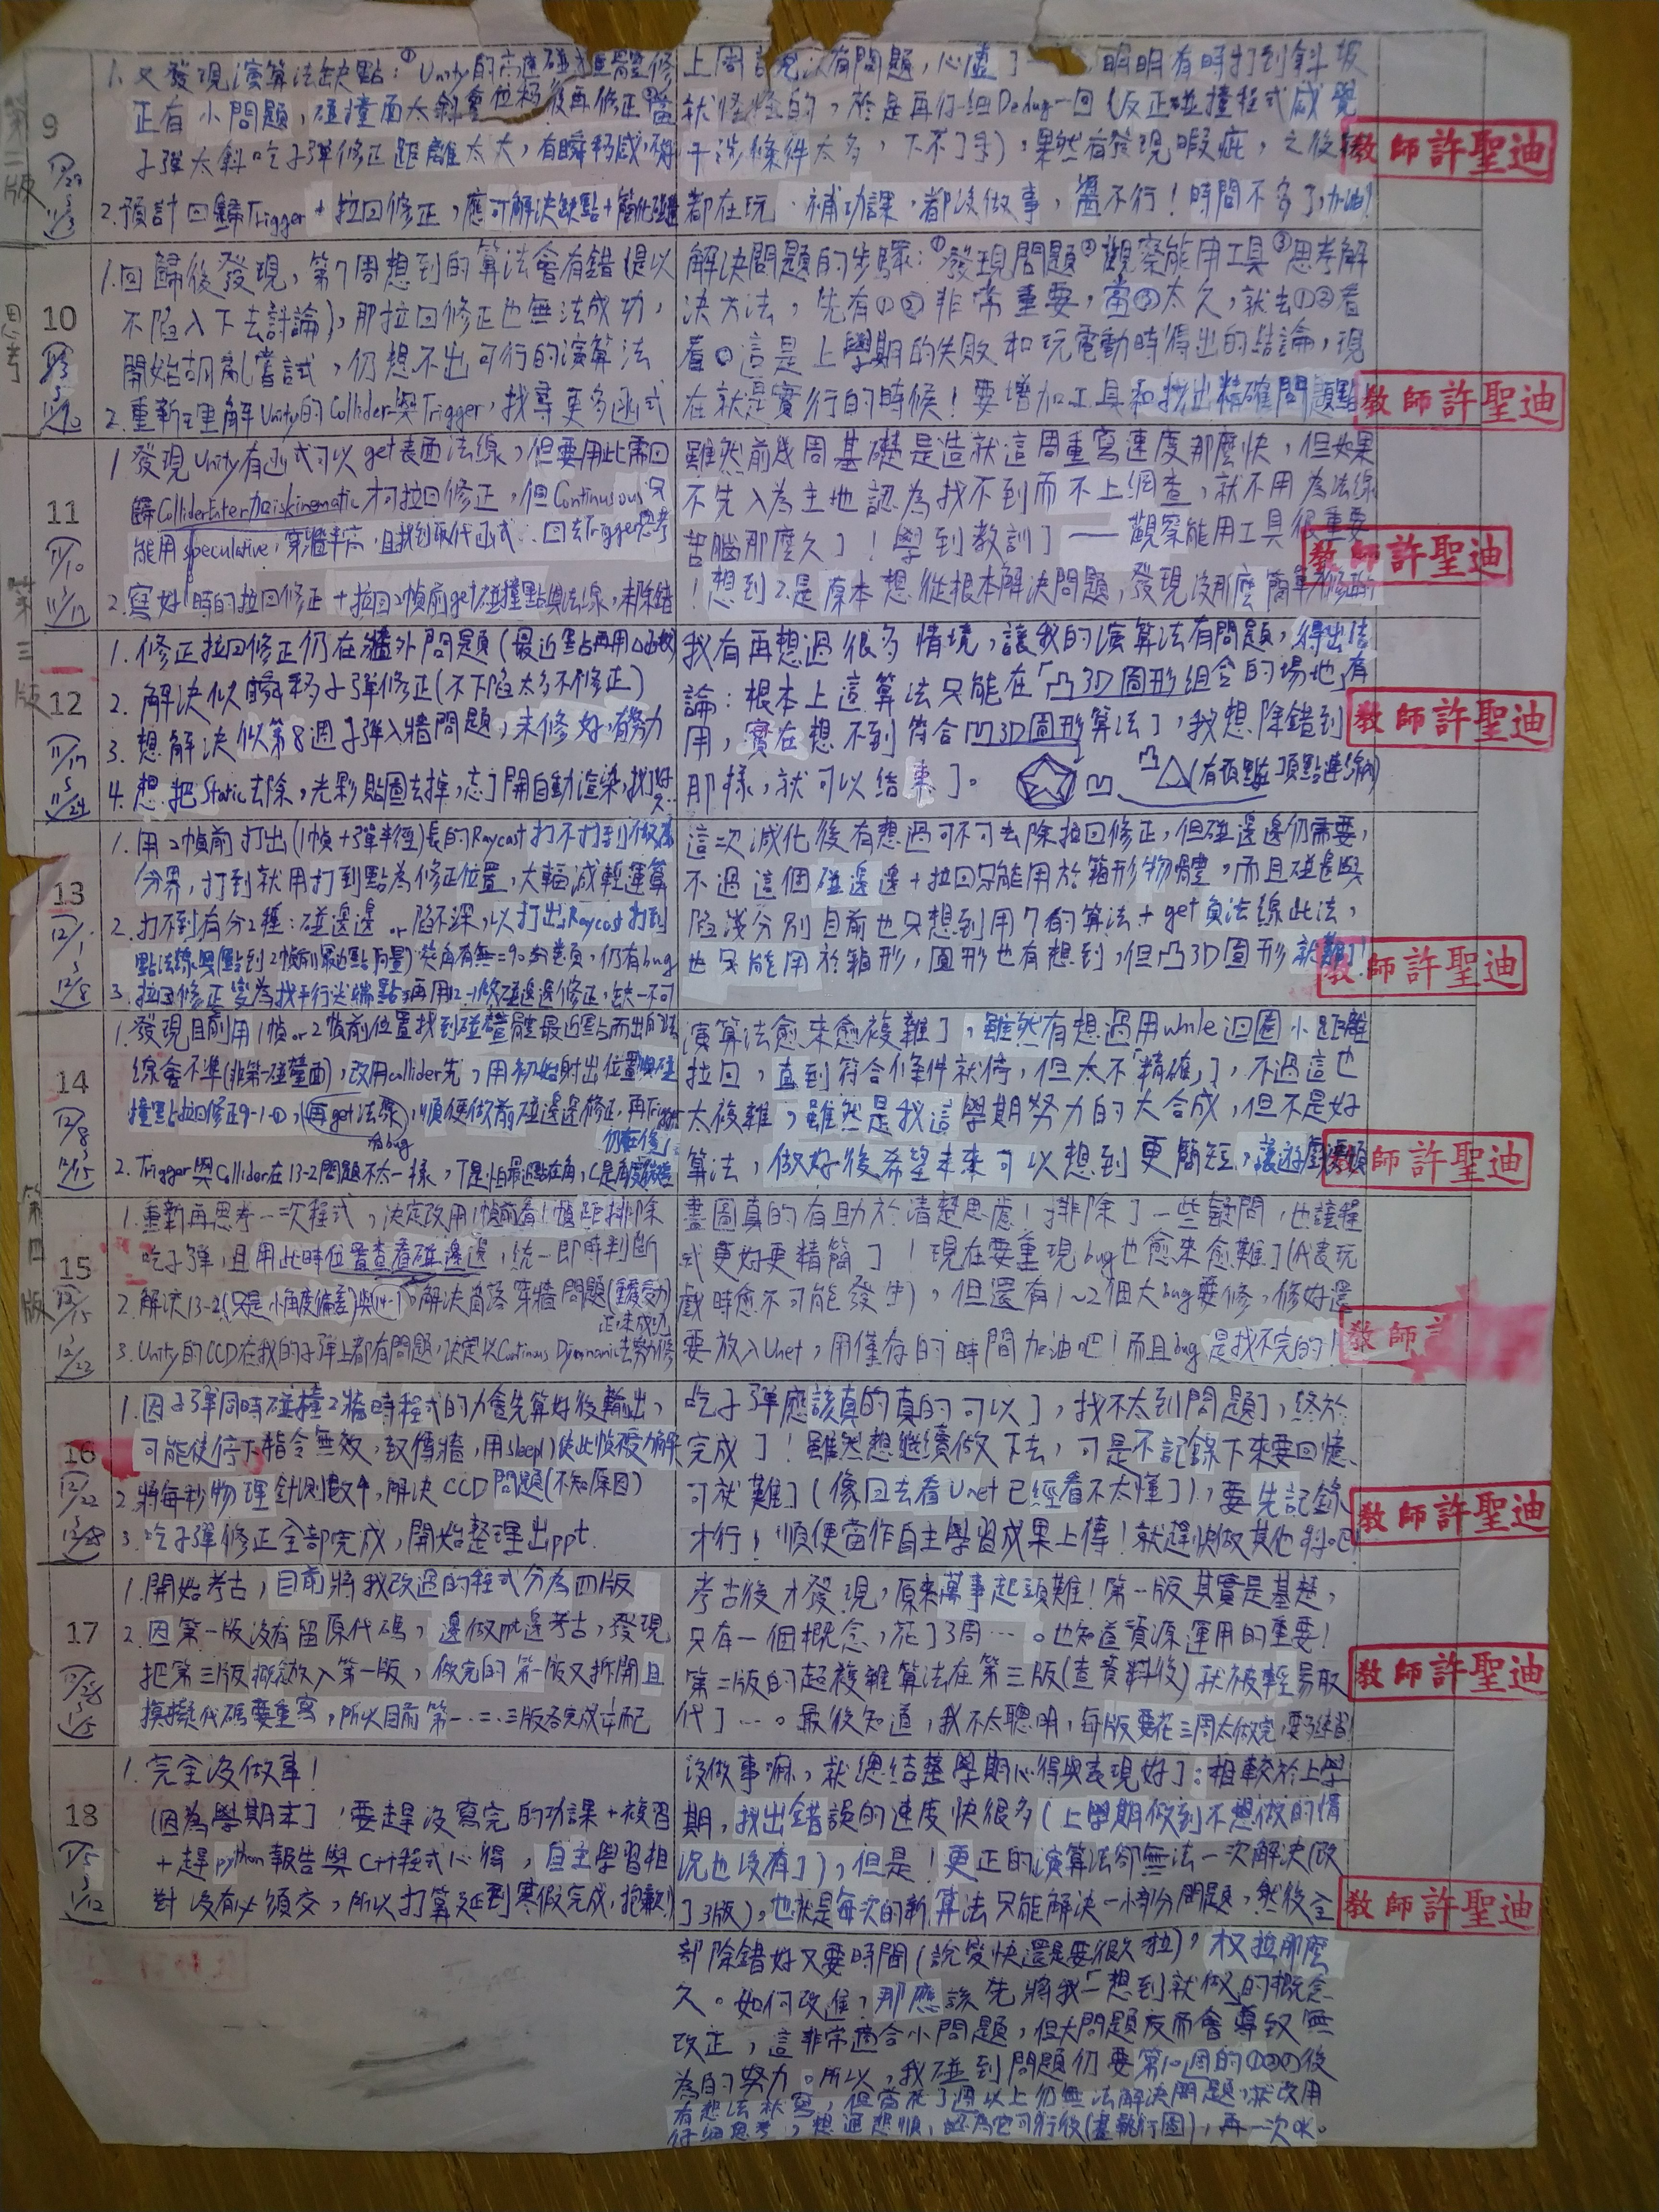 第二版
9
10/29
11/3
1. 又發現演算法缺點:①Unity的高速碰
正有小問題,碰撞面太斜會位移後再修正②當
子彈太斜吃子彈修正距離太大,有瞬移感,不好
2.預計回歸Trigger+拉回修正,應可解決缺點+簡化
上周 沒有問題,心虛了 明明有時打到斜坡
就怪怪的,於是再仔細Debug一回(反正碰撞程式感覺
干涉條件太多,下不了手),果然有發現瑕疵,之後
都在玩、補功課,都沒做事,還不行!時間不多了,加油!
教師許聖迪
思考
10
11/3
11/10
1.回歸後發現,第7周想到的算法會有錯(是以
不陷入下去討論),那拉回修正也無法成功,
開始胡亂嘗試,仍想不出可行的演算法
2.重新理解Unity的Collider與Trigger,找尋更多函式
解決問題的步驟:①發現問題②觀察能用工具③思考解
決方法,先有①②非常重要,當③太久,就去①②看
看。這是上學期的失敗和玩電動時得出的結論,現
在就是實行的時候!要增加工具和找出精確問題點
教師許聖迪
第三版
11
11/10
11/17
1 發現Unity有函式可以get表面法線,但要用此需回
歸ColliderEnter加iskinematic才可拉回修正,但Continuous只
能用speculative,穿牆率高,且找到取代函式..回去Trigger思考
2.寫好1時的拉回修正+拉回2幀前get碰撞點與法線,未除錯
雖然前幾周基礎是造就這周重寫速度那麼快,但如果
不先入為主地認為找不到而不上網查,就不用為法線
苦惱那麼久了!學到教訓了——觀察能用工具很重要
!想到2.是原本想從根本解決問題,發現沒那麼簡單
教師許聖迪
12
11/17
11/24
1. 修正拉回修正仍在牆外問題(最近點再用△函數)
2. 解決似瞬移子彈修正(不下陷太多不修正)
3. 想解決似第8週子彈入牆問題,未修好,有努力
4. 想把Static去除,光影貼圖去掉,忘了開自動渲染,找好久
我有再想過很多情境,讓我的演算法有問題,得出結
論:根本上這算法只能在「凸3D圖形組合的場地」有
用,實在想不到符合凹3D圖形算法了,我想除錯到
那樣,就可以結束了。 凹 凸
教師許聖迪
13
12/1
12/8
1. 用2幀前打出(1幀+彈半徑)長的Raycast打不打到做為
分界,打到就用打到點為修正位置,大幅減輕運算
2. 打不到有分2種:碰邊邊or陷不深,以打出Raycast打到
點法線與(點到2幀前最近點向量)夾角有無=90為差異,仍有bug
3. 拉回修正變為找平行尖端點,再用12-1修碰邊邊修正,缺一不可
這次減化後有想過可不可去除拉回修正,但碰邊邊仍需要,
不過這個碰邊邊+拉回只能用於箱形物體,而且碰邊與
陷淺分別目前也只想到用7的算法+get負法線此法,
也只能用於箱形,圓形也有想到,但凸3D圖形就難了!
教師許聖迪
14
12/8
12/15
1.發現目前用1幀or2幀前位置找到碰撞體最近點而出的法
線會不準(非第一碰撞面),改用collider先,用初始射出位置與碰
撞點拉回修正9-1-①,再get法線,順便做前碰邊邊修正,再Trigger
有bug
仍在修
2. Trigger與Collider在13-2問題不太一樣,T是怕最近點在角,C是角度
演算法愈來愈複雜了,雖然有想過用while迴圈小距離
拉回,直到符合條件就停,但太不「精確」了,不過這也
太複雜,雖然是我這學期努力的大合成,但不是好
算法,做好後希望未來可以想到更簡短,讓遊戲更順
教師許聖迪
第四版
15
12/15
12/22
1. 重新再思考一次程式,決定改用1幀前看1幀距排除
吃子彈,且用此時位置查看碰邊邊,統一即時判斷
2. 解決13-2(只是小角度偏差)與14-1。解決角落穿牆問題(重複受力)
還未成功
3. Unity的CCD在我的子彈上都有問題,決定以Continus Dynamic去努力修
畫圖真的有助於清楚思慮!排除了一些疑問,也讓程
式更好更精簡了!現在要重現bug也愈來愈難了(代表玩
戲時愈不可能發生),但還有1~2個大bug要修,修好還
要放入Unet,用僅存的時間加油吧!而且bug是找不完的!
教師
16
12/22
12/28
1.因子彈同時碰撞2牆時程式的力會先算好後輸出,
可能使停下指令無效,致穿牆,用sleep()使此幀受力解
2.將每秒物理針測數↑,解決CCD問題(不知原因)
3. 吃子彈修正全部完成,開始整理出ppt.
吃子彈應該真的真的可以了,找不太到問題了,終於
完成了!雖然想繼續做下去,可是不記錄下來要回憶
可就難了(像回去看Unet已經看不太懂了),要先記錄
才行,順便當作自主學習成果上傳!就趕快做其他科吧
教師許聖迪
17
12/28
1/5
1.開始考古,目前將我改過的程式分為四版
2.因第一版沒有留原代碼,邊做ppt邊考古,發現
把第三版概念放入第一版,做完的第一版又拆開且
模擬代碼要重寫,所以目前第一.二.三版各完成一半而已
考古後才發現,原來萬事起頭難!第一版其實是基楚,
只有一個概念,花了3周…。也知道資源運用的重要!
第二版的超複雜算法在第三版(查資料後)就被輕易取
代了…。最後知道,我不太聰明,每版要花三周太做完,要多練習!
教師許聖迪
18
1/5
1/12
1.完全沒做事!
(因為學期末了,要趕沒寫完的功課+複習
+趕python報告與C++程式心得,自主學習相
對沒有必須交,所以打算延到寒假完成,抱歉!)
沒做事嘛,就總結整學期心得與表現好了:相較於上學
期,找出錯誤的速度快很多(上學期做到不想做的情
況也沒有了),但是!更正的演算法卻無法一次解決(改
了3版),也就是每次的新算法只能解決一小部分問題,然後全
部除錯好又要時間(說變快還是要很久啦),才拉那麼
久。如何改進?那應該先將我「想到就做」的概念
改正,這非常適合小問題,但大問題反而會導致無
為的努力。所以,我碰到問題仍要第10週的①②③後
有想法就寫,但當花了1週以上仍無法解決問題,就改用
仔細思考,想通想順,認為它可行後(畫執行圖),再一次OK。
教師許聖迪